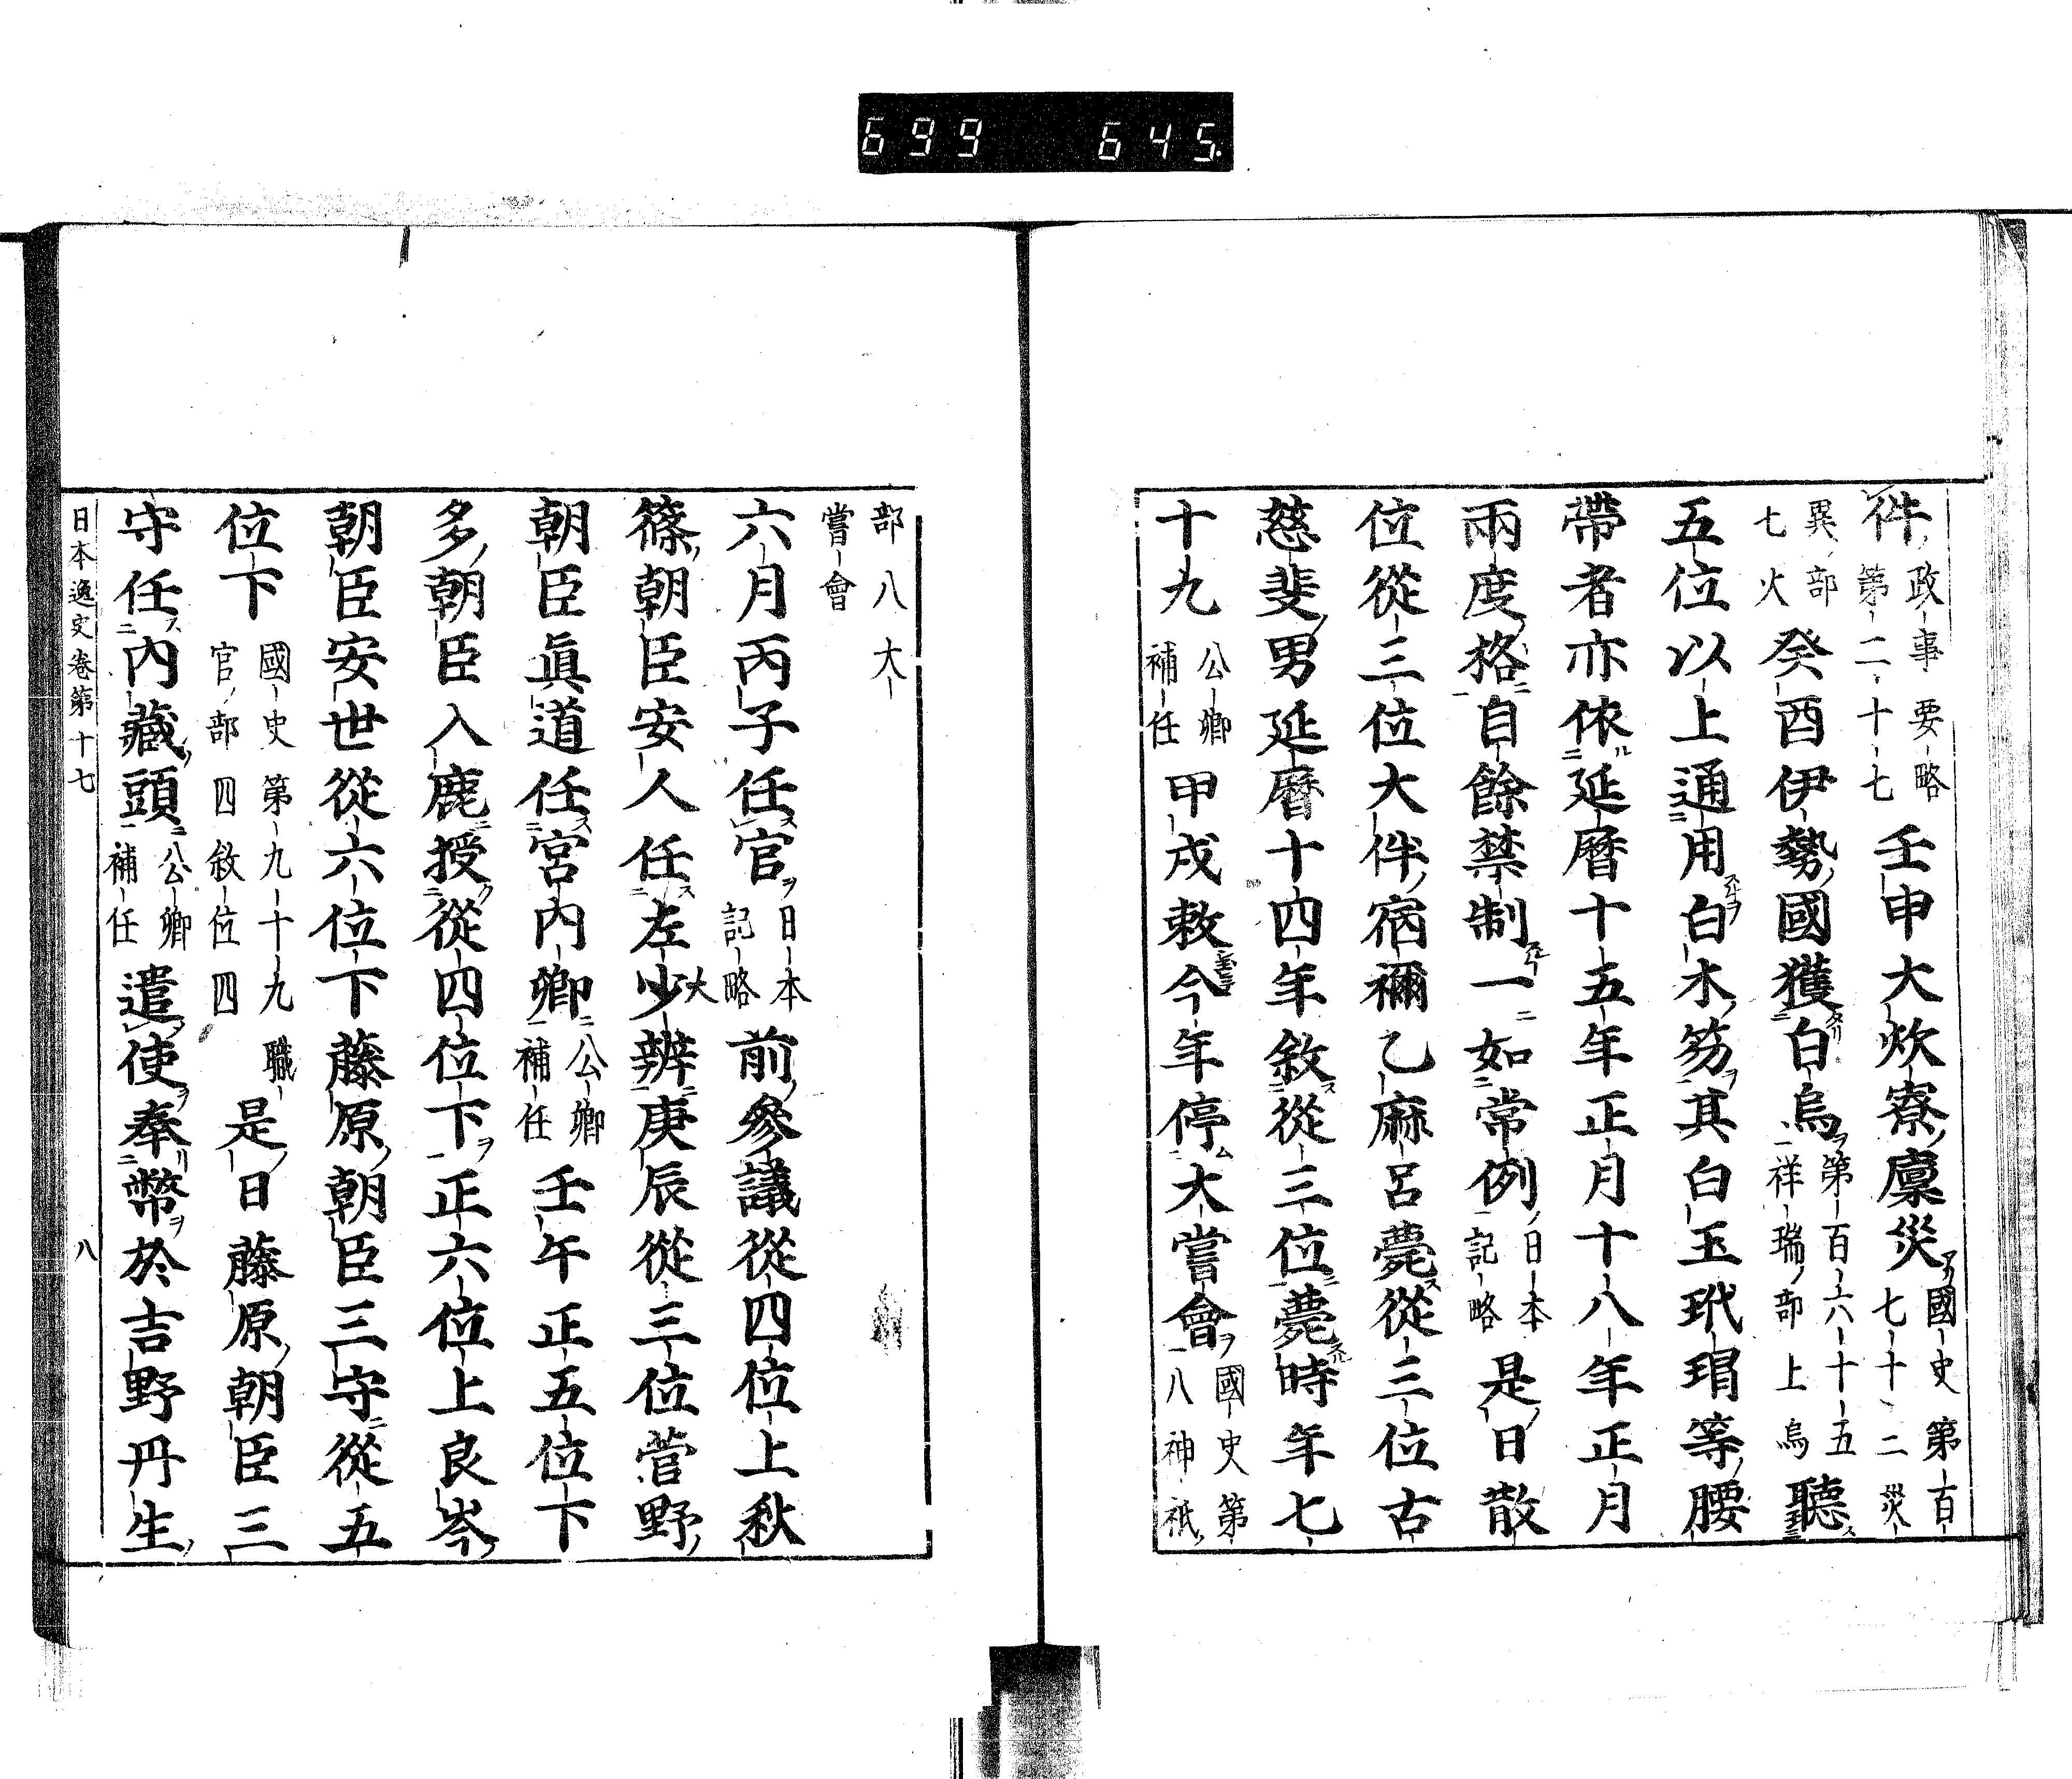 699 645
件政事要略第二十七壬申大炊寮廩災國史第百七十二災
異部七火癸酉伊勢國獲白烏第百六十五祥瑞部上烏聽
五位以上通用白木笏其白玉玳瑁等腰
帶者亦依延曆十五年正月十八年正月
兩度格自餘禁制一如常例日本記略是日散
位從三位大伴宿禰乙麻呂薨從三位古
慈斐男延曆十四年敘從三位薨時年七
十九公卿補任甲戌敕今年停大嘗會國史第八神祇
部八大嘗會
六月丙子任官日本記略前參議從四位上秋
篠朝臣安人任左少大辨庚辰從三位菅野
朝臣眞道任宮內卿公卿補任壬午正五位下
多朝臣入鹿授從四位下正六位上良岑
朝臣安世從六位下藤原朝臣三守從五
位下國史第九十九職官部四敘位四是日藤原朝臣三
守任內藏頭公卿補任遣使奉幣於吉野丹生
日本逸史卷第十七 八